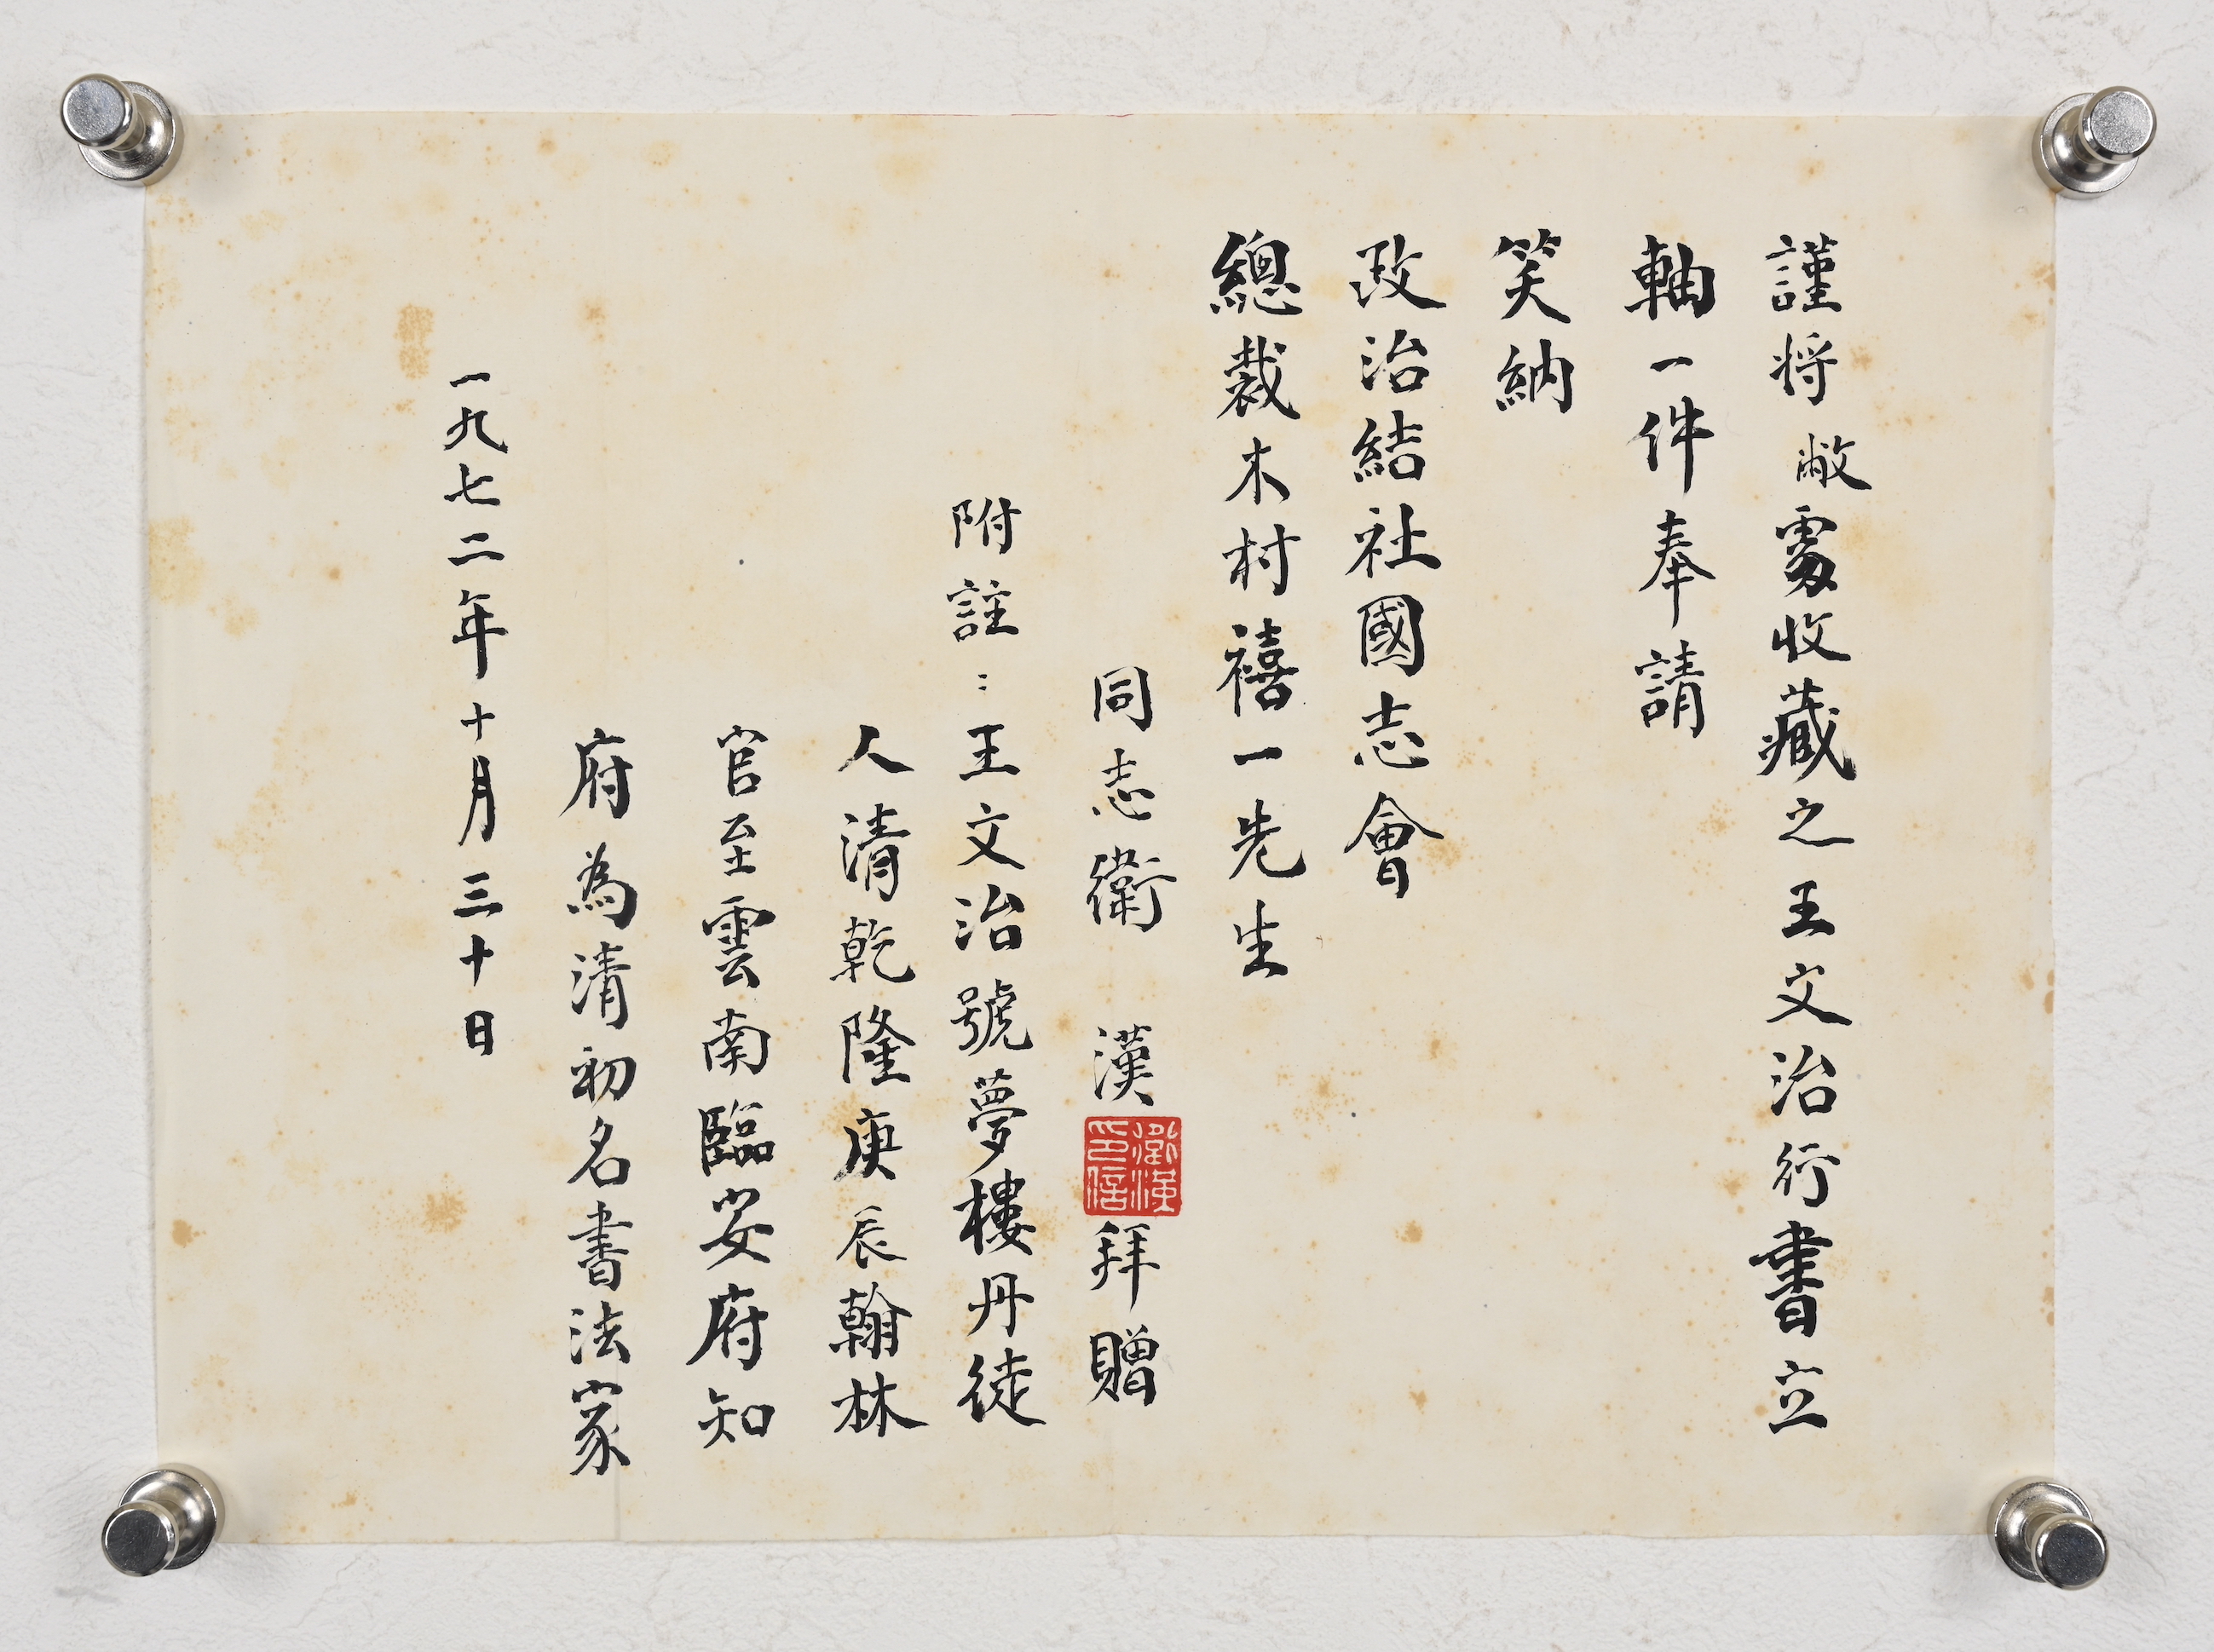 謹将敝處收藏之王文治行書立
軸一件奉請
笑納
政治結社國志會
總裁木村禧一先生
同志衛漢
衛漢印信
拜贈
附註：王文治號夢樓丹徒
人清乾隆庚辰翰林
官至雲南臨安府知
府為清初名書法家
一九七二年十月三十日